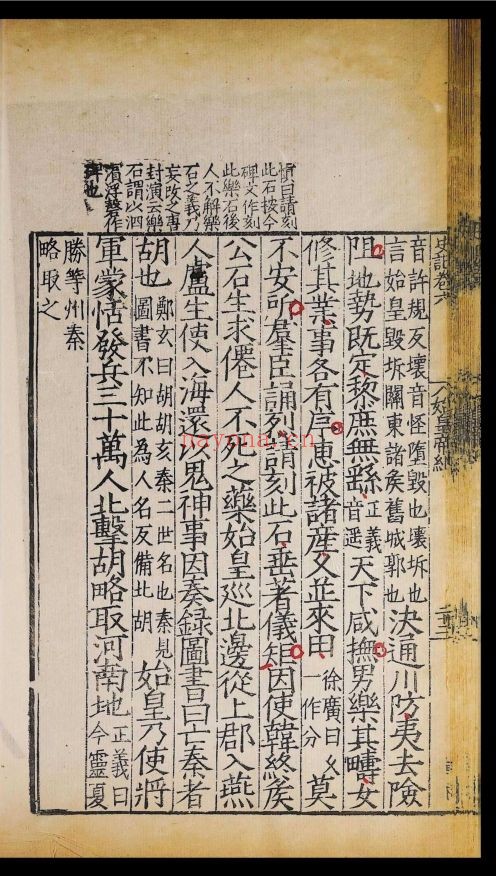 慎曰請刻
此石按今
碑文作刻
此樂石後
人不解樂
石之義乃
妄改之唐
封演云樂
石謂以泗
濱浮磬作
碑也
史記卷六
始皇帝紀
音許規反壞音怪墮毀也壞坼也言始皇毀坼關東諸矦舊城郭也決通川防夷去險
阻地勢既定黎庶無繇正義音遥天下咸撫男樂其疇女
修其業事各有序惠被諸產久並來田徐廣曰久一作分莫
不安所羣臣誦烈請刻此石垂著儀矩因使韓終矦
公石生求僊人不死之藥始皇巡北邊從上郡入燕
人盧生使入海還以鬼神事因奏録圖書曰亡秦者
胡也鄭玄曰胡胡亥秦二世名也秦見圖書不知此為人名反備北胡始皇乃使將
軍蒙恬發兵三十萬人北擊胡略取河南地正義曰今靈夏
勝等州秦
略取之
nayona.cn